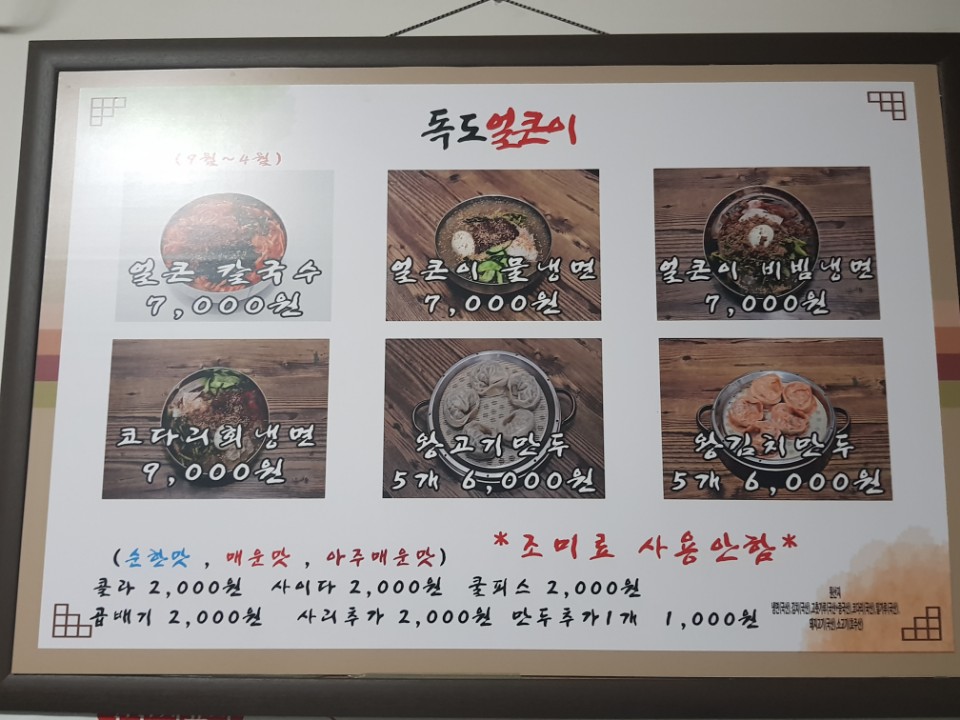 독도얼큰이
(9월~4월)
얼큰 칼국수
7,000원
얼큰이 물냉면
7,000원
얼큰이 비빔냉면
7,000원
코다리회냉면
9,000원
왕고기만두
5개 6,000원
왕김치만두
5개 6,000원
(순한맛 , 매운맛 , 아주매운맛)
*조미료 사용안함*
콜라 2,000원 사이다 2,000원 쿨피스 2,000원
곱배기 2,000원 사리추가 2,000원 만두추가1개 1,000원
원산지
돼지고기(국산),소고기(호주산)